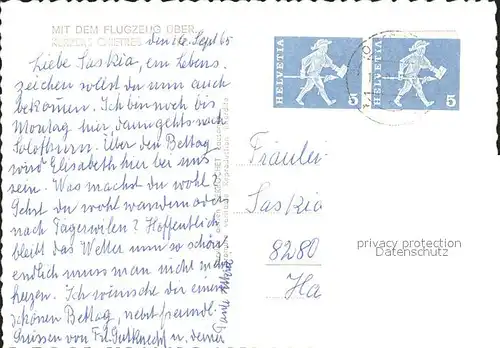 MIT DEM FLUGZEUG ÜBER
den 16. Sept 65
Liebe Saskia, ein Lebens-
zeichen sollst du nun auch
bekommen. Ich bin noch bis
Montag hier, dann gehts nach
Solothurn. Über den Bettag
wird Elisabeth hier bei uns
sein. Was machst du wohl?
Gehst du wohl wandern oder
nach Tägerwilen? Hoffentlich
bleibt das Wetter nun so schön
endlich muss man nicht mehr
heizen. Ich wünsche dir einen
schönen Bettag, nebst freundl.
Grüssen von Frl. Gutknecht u. deiner
Tante
HELVETIA 5
HELVETIA 5
Fräulein
Saskia
8280
privacy protection
Datenschutz